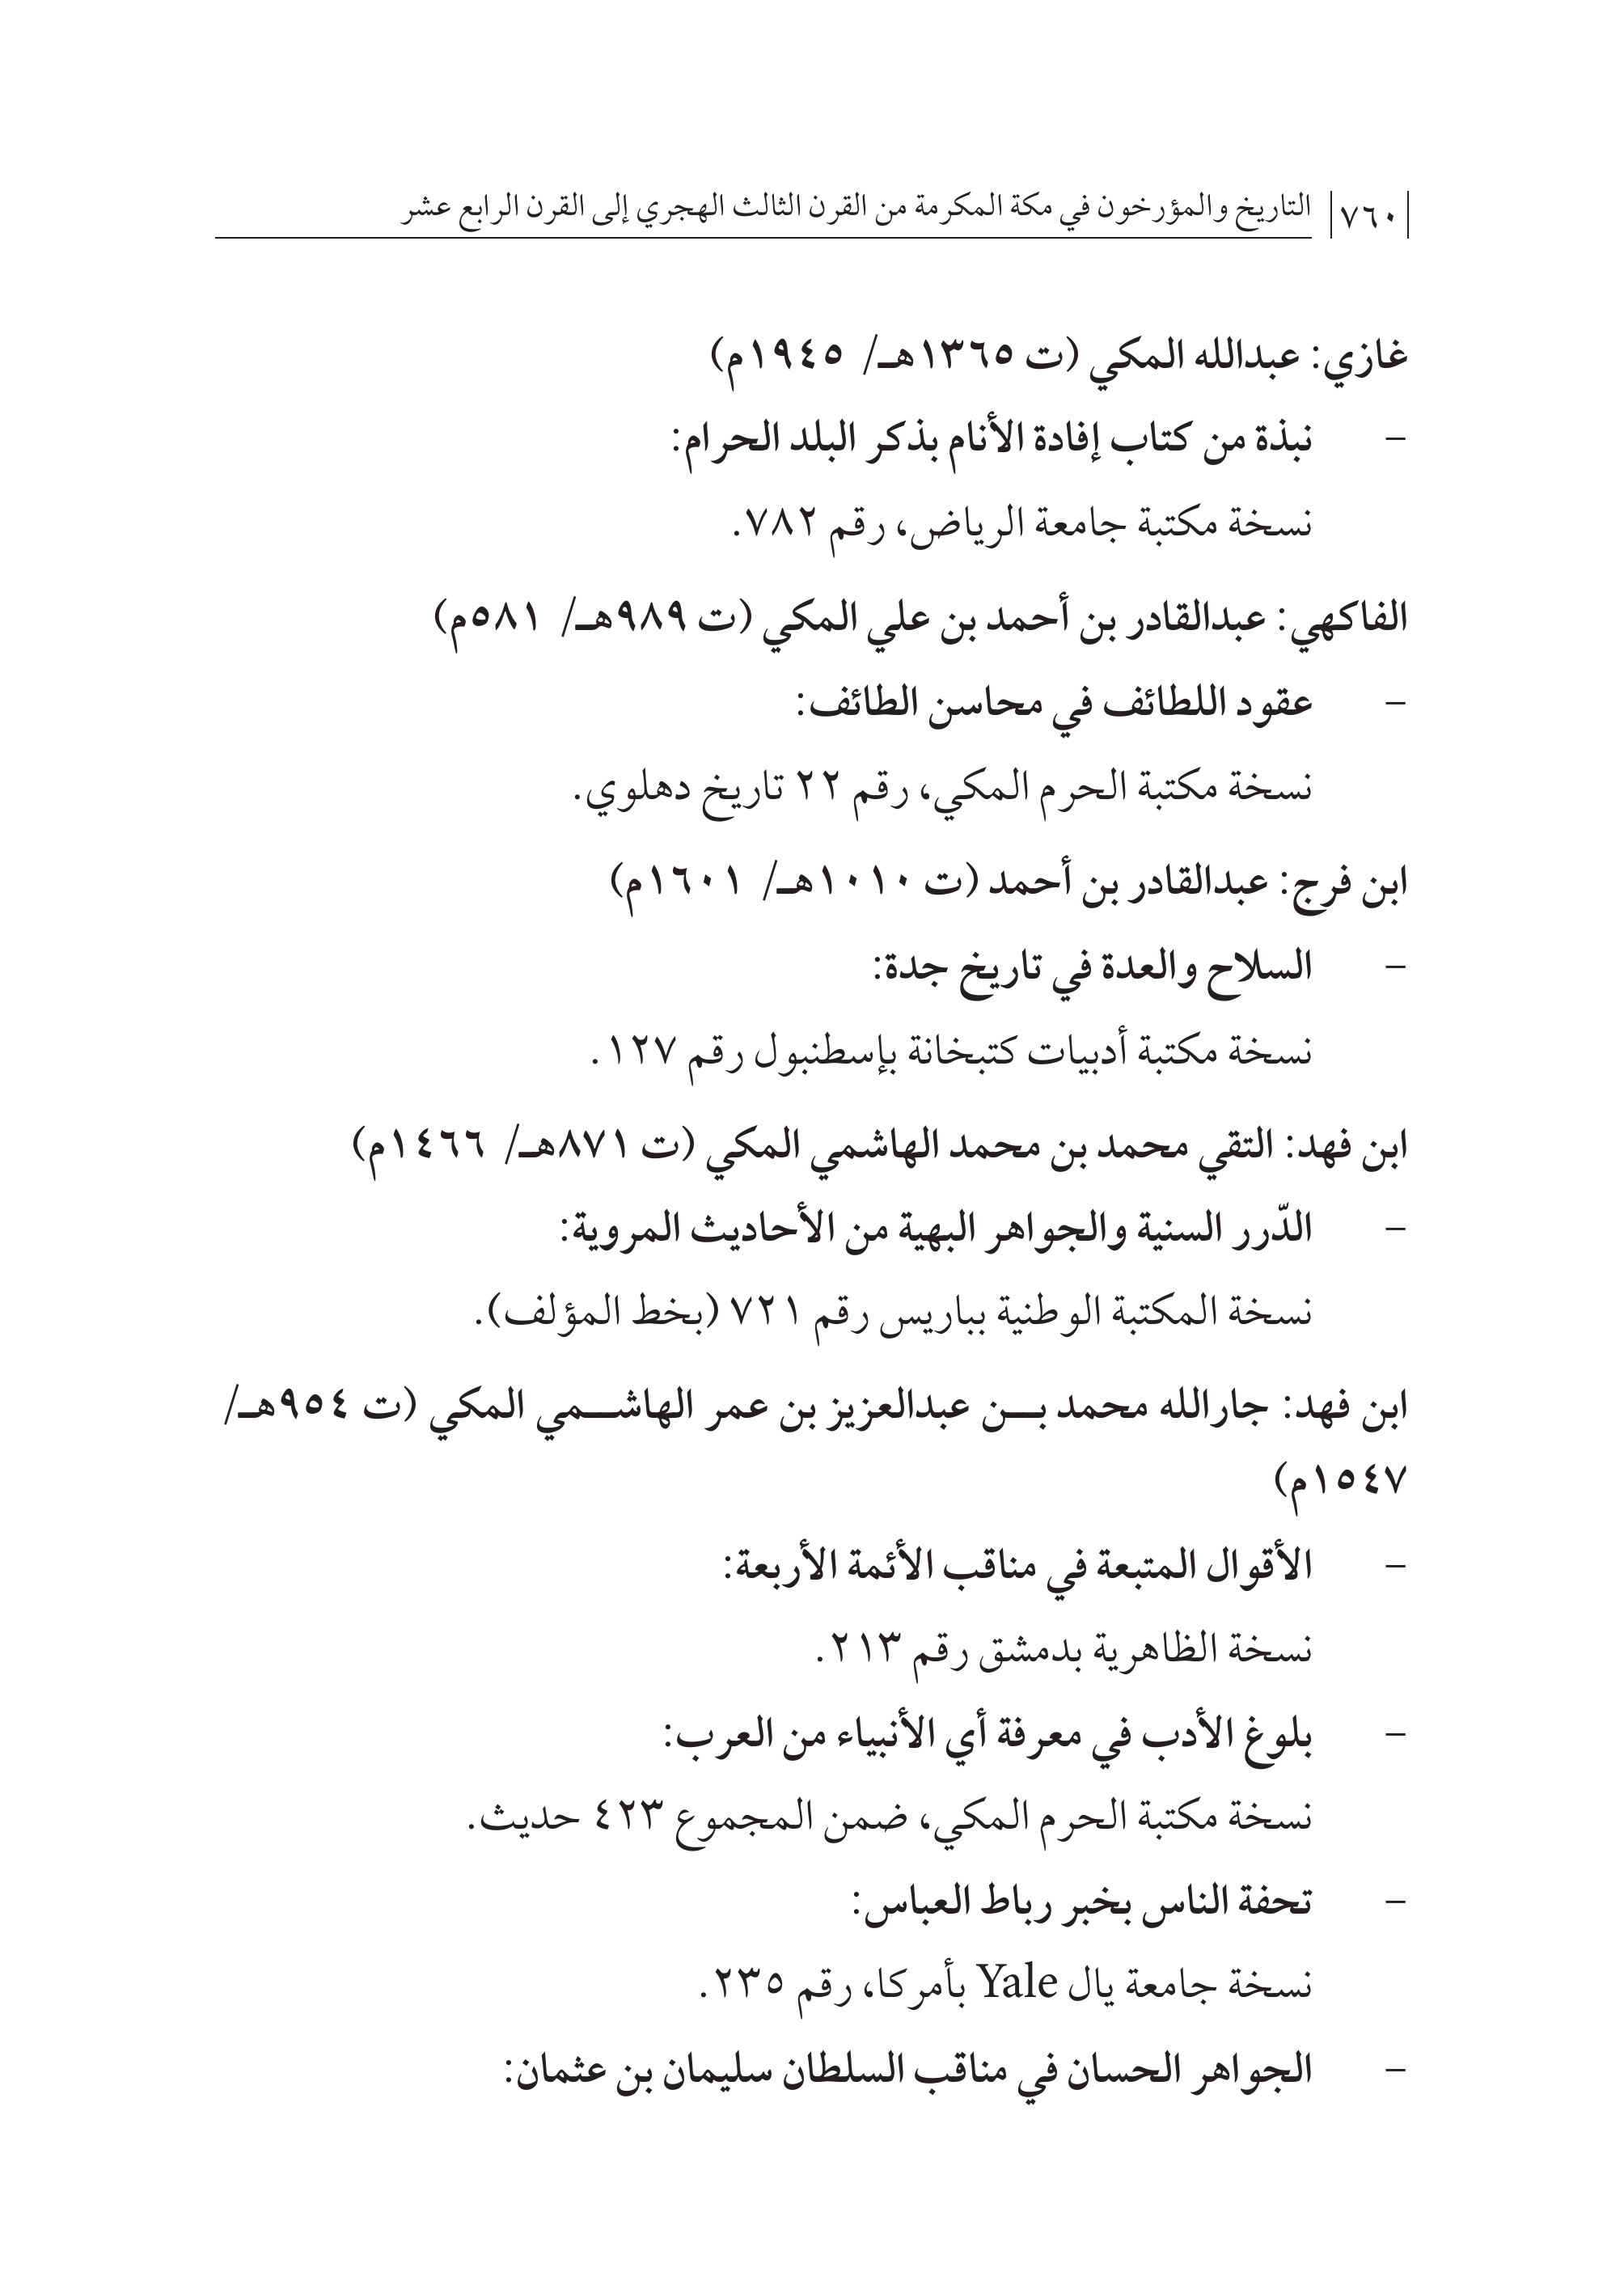 |٧٦٠| التاريخ والمؤرخون في مكة المكرمة من القرن الثالث الهجري إلى القرن الرابع عشر
غازي: عبدالله المكي (ت ١٣٦٥هـ/ ١٩٤٥م)
– نبذة من كتاب إفادة الأنام بذكر البلد الحرام:
نسخة مكتبة جامعة الرياض، رقم ٧٨٢.
الفاكهي: عبدالقادر بن أحمد بن علي المكي (ت ٩٨٩هـ/ ٥٨١م)
– عقود اللطائف في محاسن الطائف:
نسخة مكتبة الحرم المكي، رقم ٢٢ تاريخ دهلوي.
ابن فرج: عبدالقادر بن أحمد (ت ١٠١٠هـ/ ١٦٠١م)
– السلاح والعدة في تاريخ جدة:
نسخة مكتبة أدبيات كتبخانة بإسطنبول رقم ١٢٧.
ابن فهد: التقي محمد بن محمد الهاشمي المكي (ت ٨٧١هـ/ ١٤٦٦م)
– الدّرر السنية والجواهر البهية من الأحاديث المروية:
نسخة المكتبة الوطنية بباريس رقم ٧٢١ (بخط المؤلف).
ابن فهد: جارالله محمد بـــن عبدالعزيز بن عمر الهاشـــمي المكي (ت ٩٥٤هـ/
١٥٤٧م)
– الأقوال المتبعة في مناقب الأئمة الأربعة:
نسخة الظاهرية بدمشق رقم ٢١٣.
– بلوغ الأدب في معرفة أي الأنبياء من العرب:
نسخة مكتبة الحرم المكي، ضمن المجموع ٤٢٣ حديث.
– تحفة الناس بخبر رباط العباس:
نسخة جامعة يال Yale بأمركا، رقم ٢٣٥.
– الجواهر الحسان في مناقب السلطان سليمان بن عثمان: